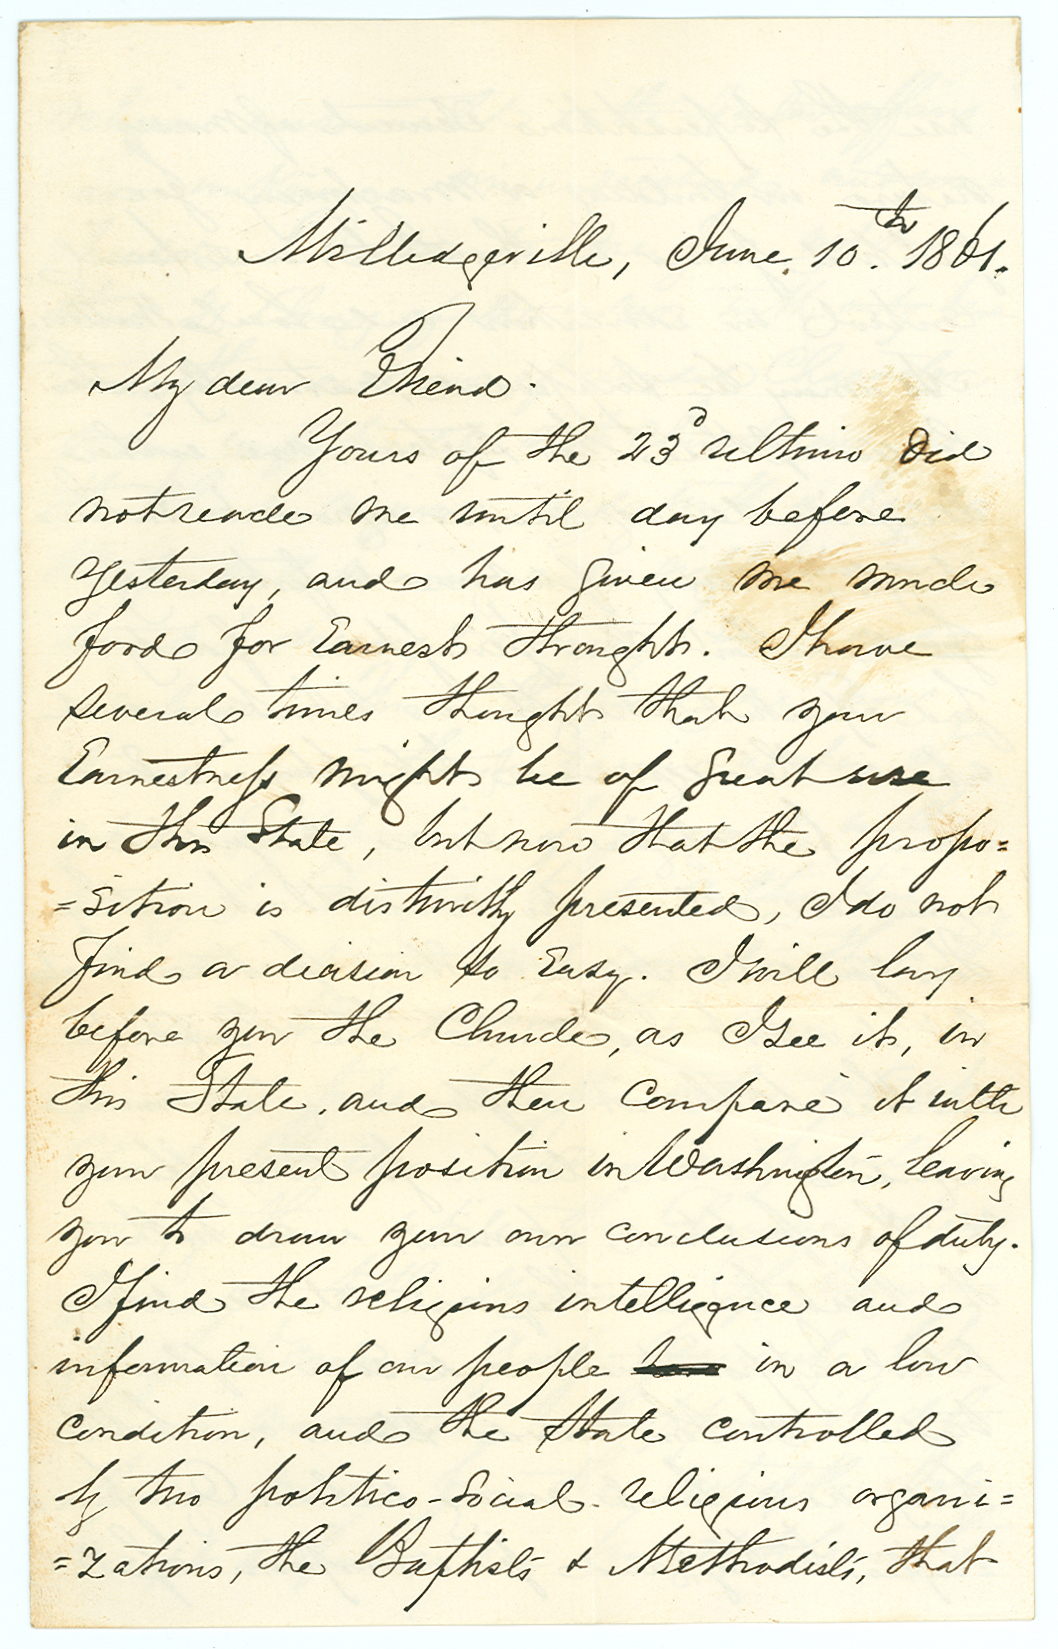 Milledgeville, June 10th. 1861.
My dear Friend.
Yours of the 23d ultimo did
not reach me until day before
yesterday, and has given me much
food for Earnest thought. I have
several times thought that your
Earnestness might be of great use
in this State, but now that the propo=
=sition is distinctly presented, I do not
find a decision so Easy. I will lay
before you the Church, as I see it, in
this State, and then compare it with
your present position in Washington, leaving
you to draw your own conclusions of duty.
I find the religious intelligence and
information of our people in a low
condition, and the State controlled
by two politico-social-religious organi=
=zations, the Baptists & Methodists, that